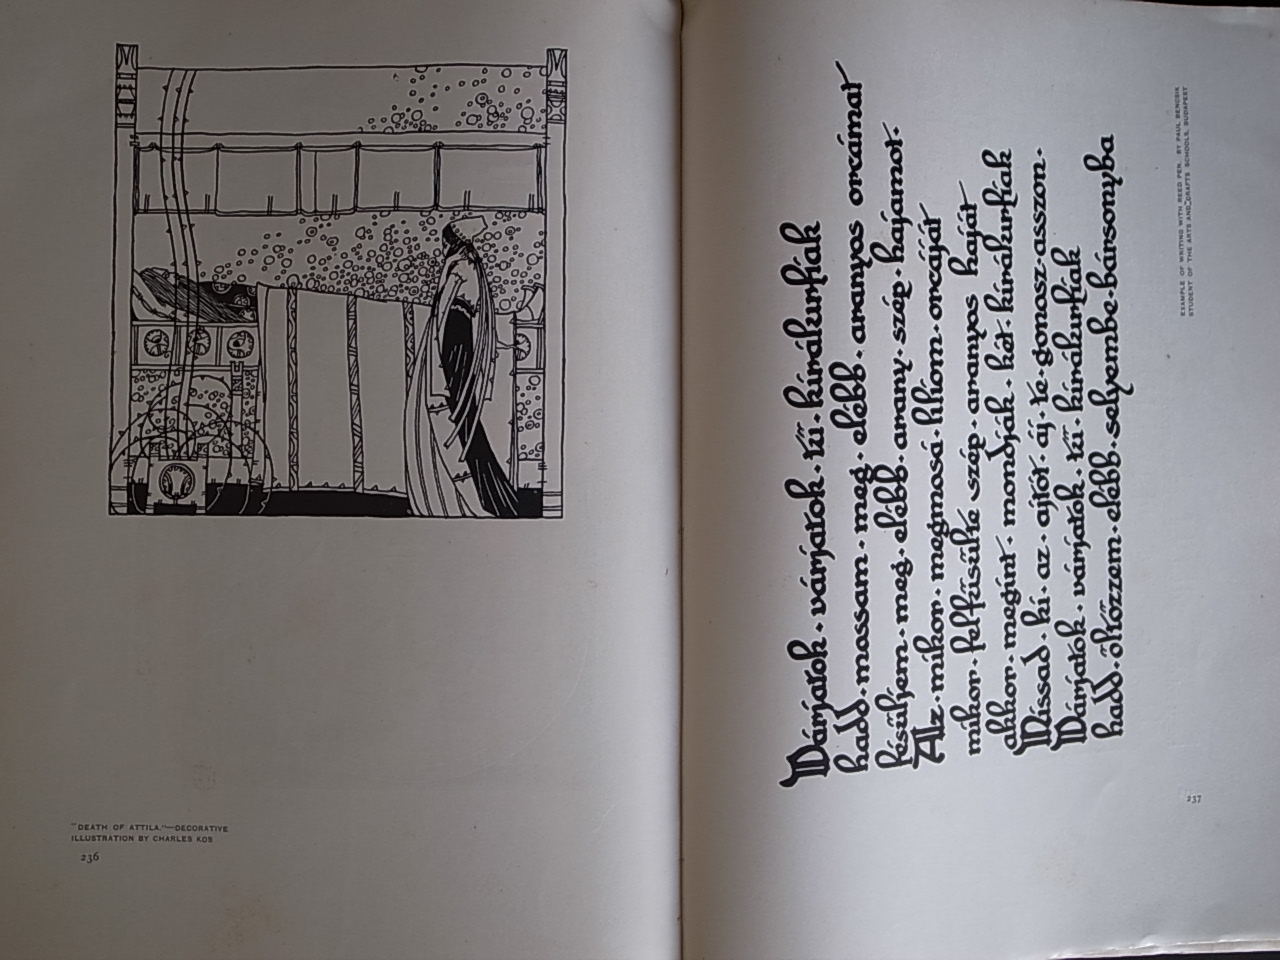 "DEATH OF ATTILA."—DECORATIVE
ILLUSTRATION BY CHARLES KOS
236
Várjatok · várjatok · ti · királyurfiak
hadd · mossam · meg · elébb · aranyos orcámat
fésüljem · meg · elébb · arany · szép · hajamot ·
Az · mikor · megmosá · liliom · orcáját
mikor · felfésülte szép · aranyos haját
akkor · megint · mondják · hát · királyurfiak
Nissad · ki · az · ajtót · áj · te · gonosz · asszon ·
Várjatok · várjatok · ti · királyurfiak
hadd · öltözzem · elébb · selyembe · bársonyba
EXAMPLE OF WRITING WITH REED PEN. BY PAUL BENCSIK
STUDENT OF THE ARTS AND CRAFTS SCHOOLS, BUDAPEST
237